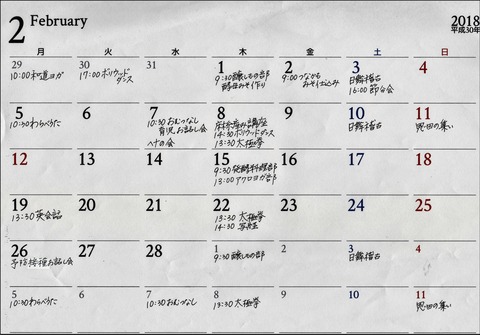 2 February
2018
平成30年
月 火 水 木 金 土 日
29 30 31 1 2 3 4
10:00 和道ヨガ
17:00 ボリウッド
ダンス
9:30 醸しもの部
酵母みそ作り
9:00 つながも
みそ仕込み
日舞稽古
16:00 節句会
5 6 7 8 9 10 11
10:30 わらべうた
10:30 おむつなし
育児お話し会
への会
麻糸産み講座
14:30 ボリウッドダンス
13:30 太極拳
日舞稽古
恩田の集い
12 13 14 15 16 17 18
9:30 発酵料理部
13:00 アクロヨガ部
19 20 21 22 23 24 25
13:30 英会話
13:30 太極拳
14:30 写経
26 27 28 1 2 3 4
予防接種お話し会
9:30 醸しもの部
日舞稽古
5 6 7 8 9 10 11
10:30 わらべうた
10:30 おむつなし
13:30 太極拳
恩田の集い